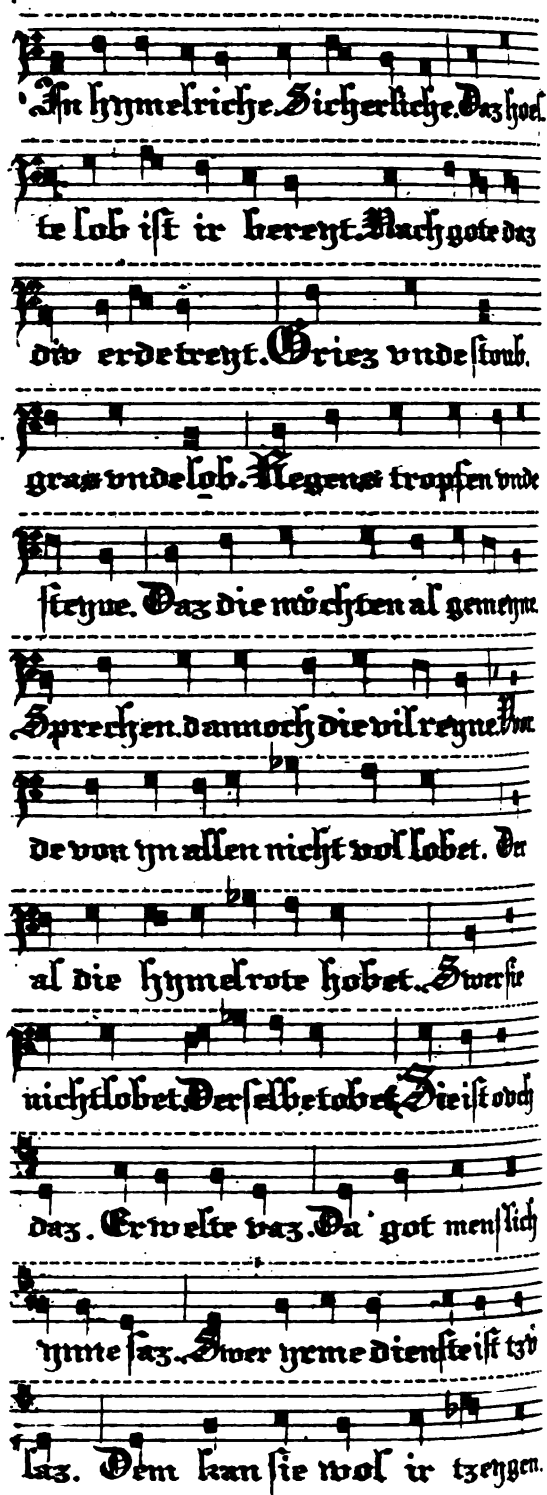 In hymelriche. Sicherliche. Daz hoes
te lob ist ir bereyt. Nach gote daz
div erde treyt. Griez vnde stoub.
gras vnde lob. Regens tropfen vnde
steyne. Daz die möchten al gemeyne
Sprechen. dannoch die vil reyne
de von yn allen nicht vol lobet. Der
al die hymelrote hobet. Swer sie
nicht lobet. Der selbe tobet. Sie ist ovch
daz. Er welte vaz. Da got menslich
ynne saz. Swer yrme dienste ist tzv
laz. Dem kan sie wol ir tzeygen.